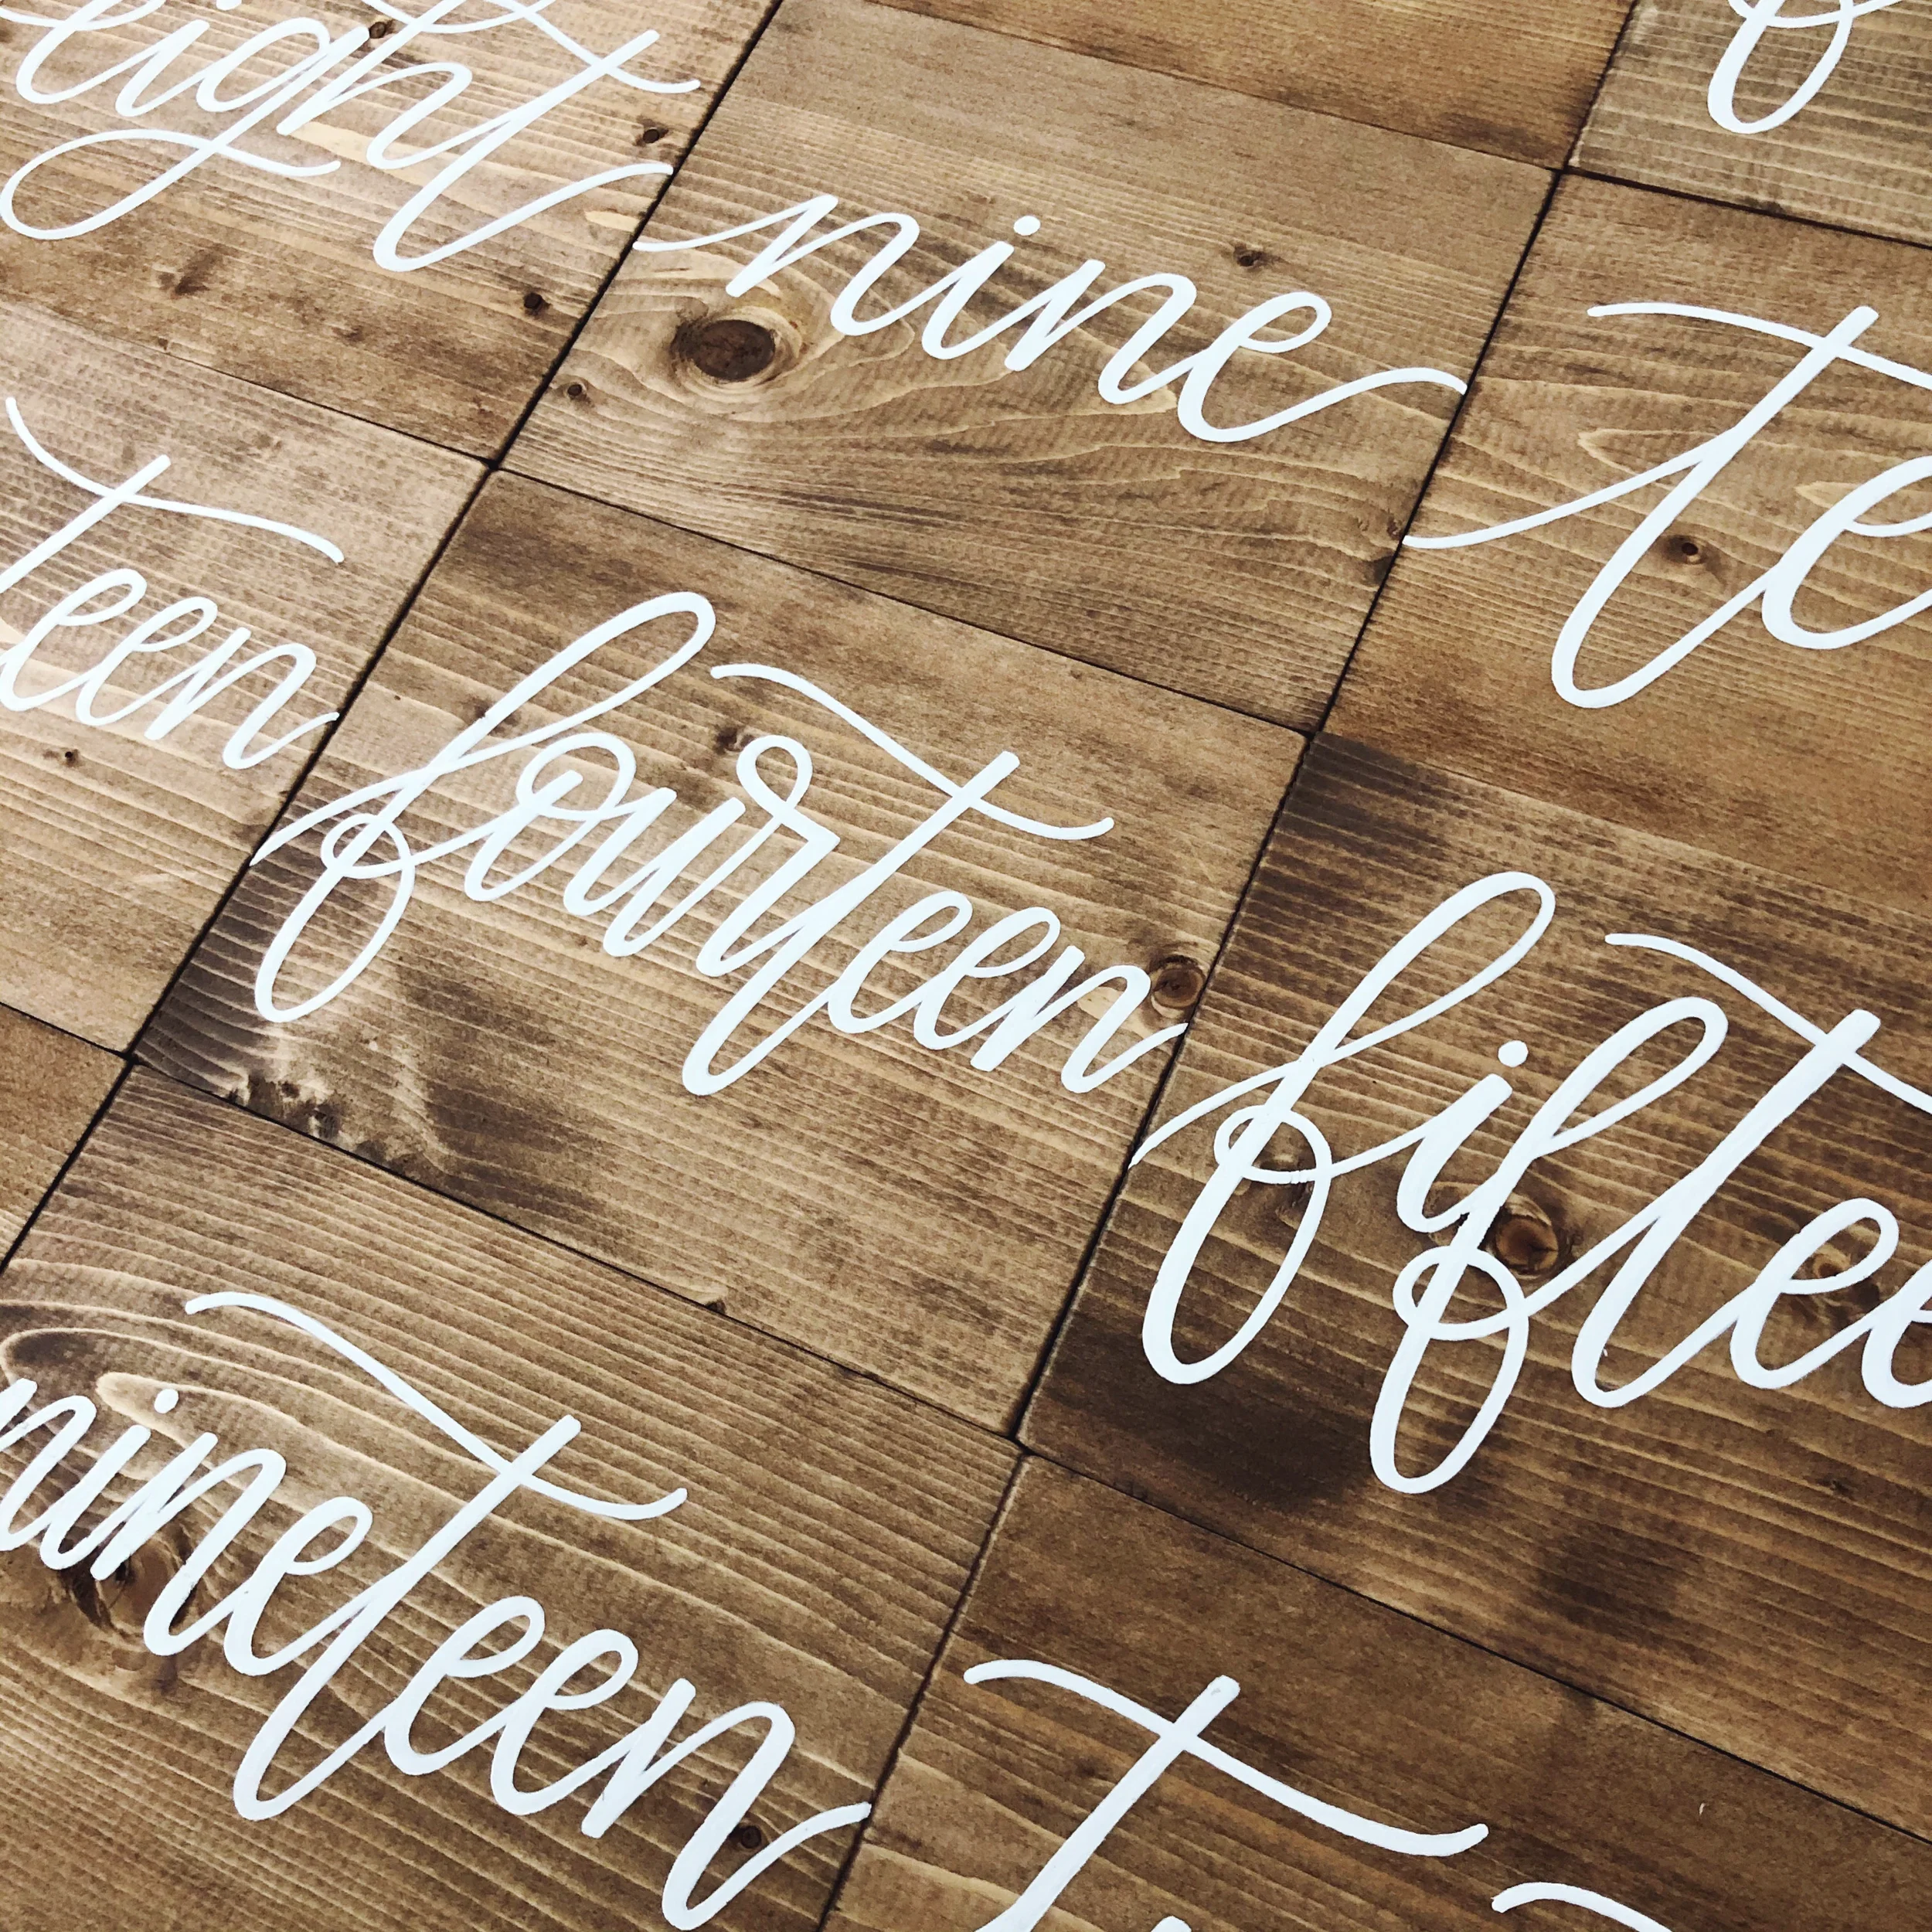 eight nine te
teen fourteen fiftee
nineteen t